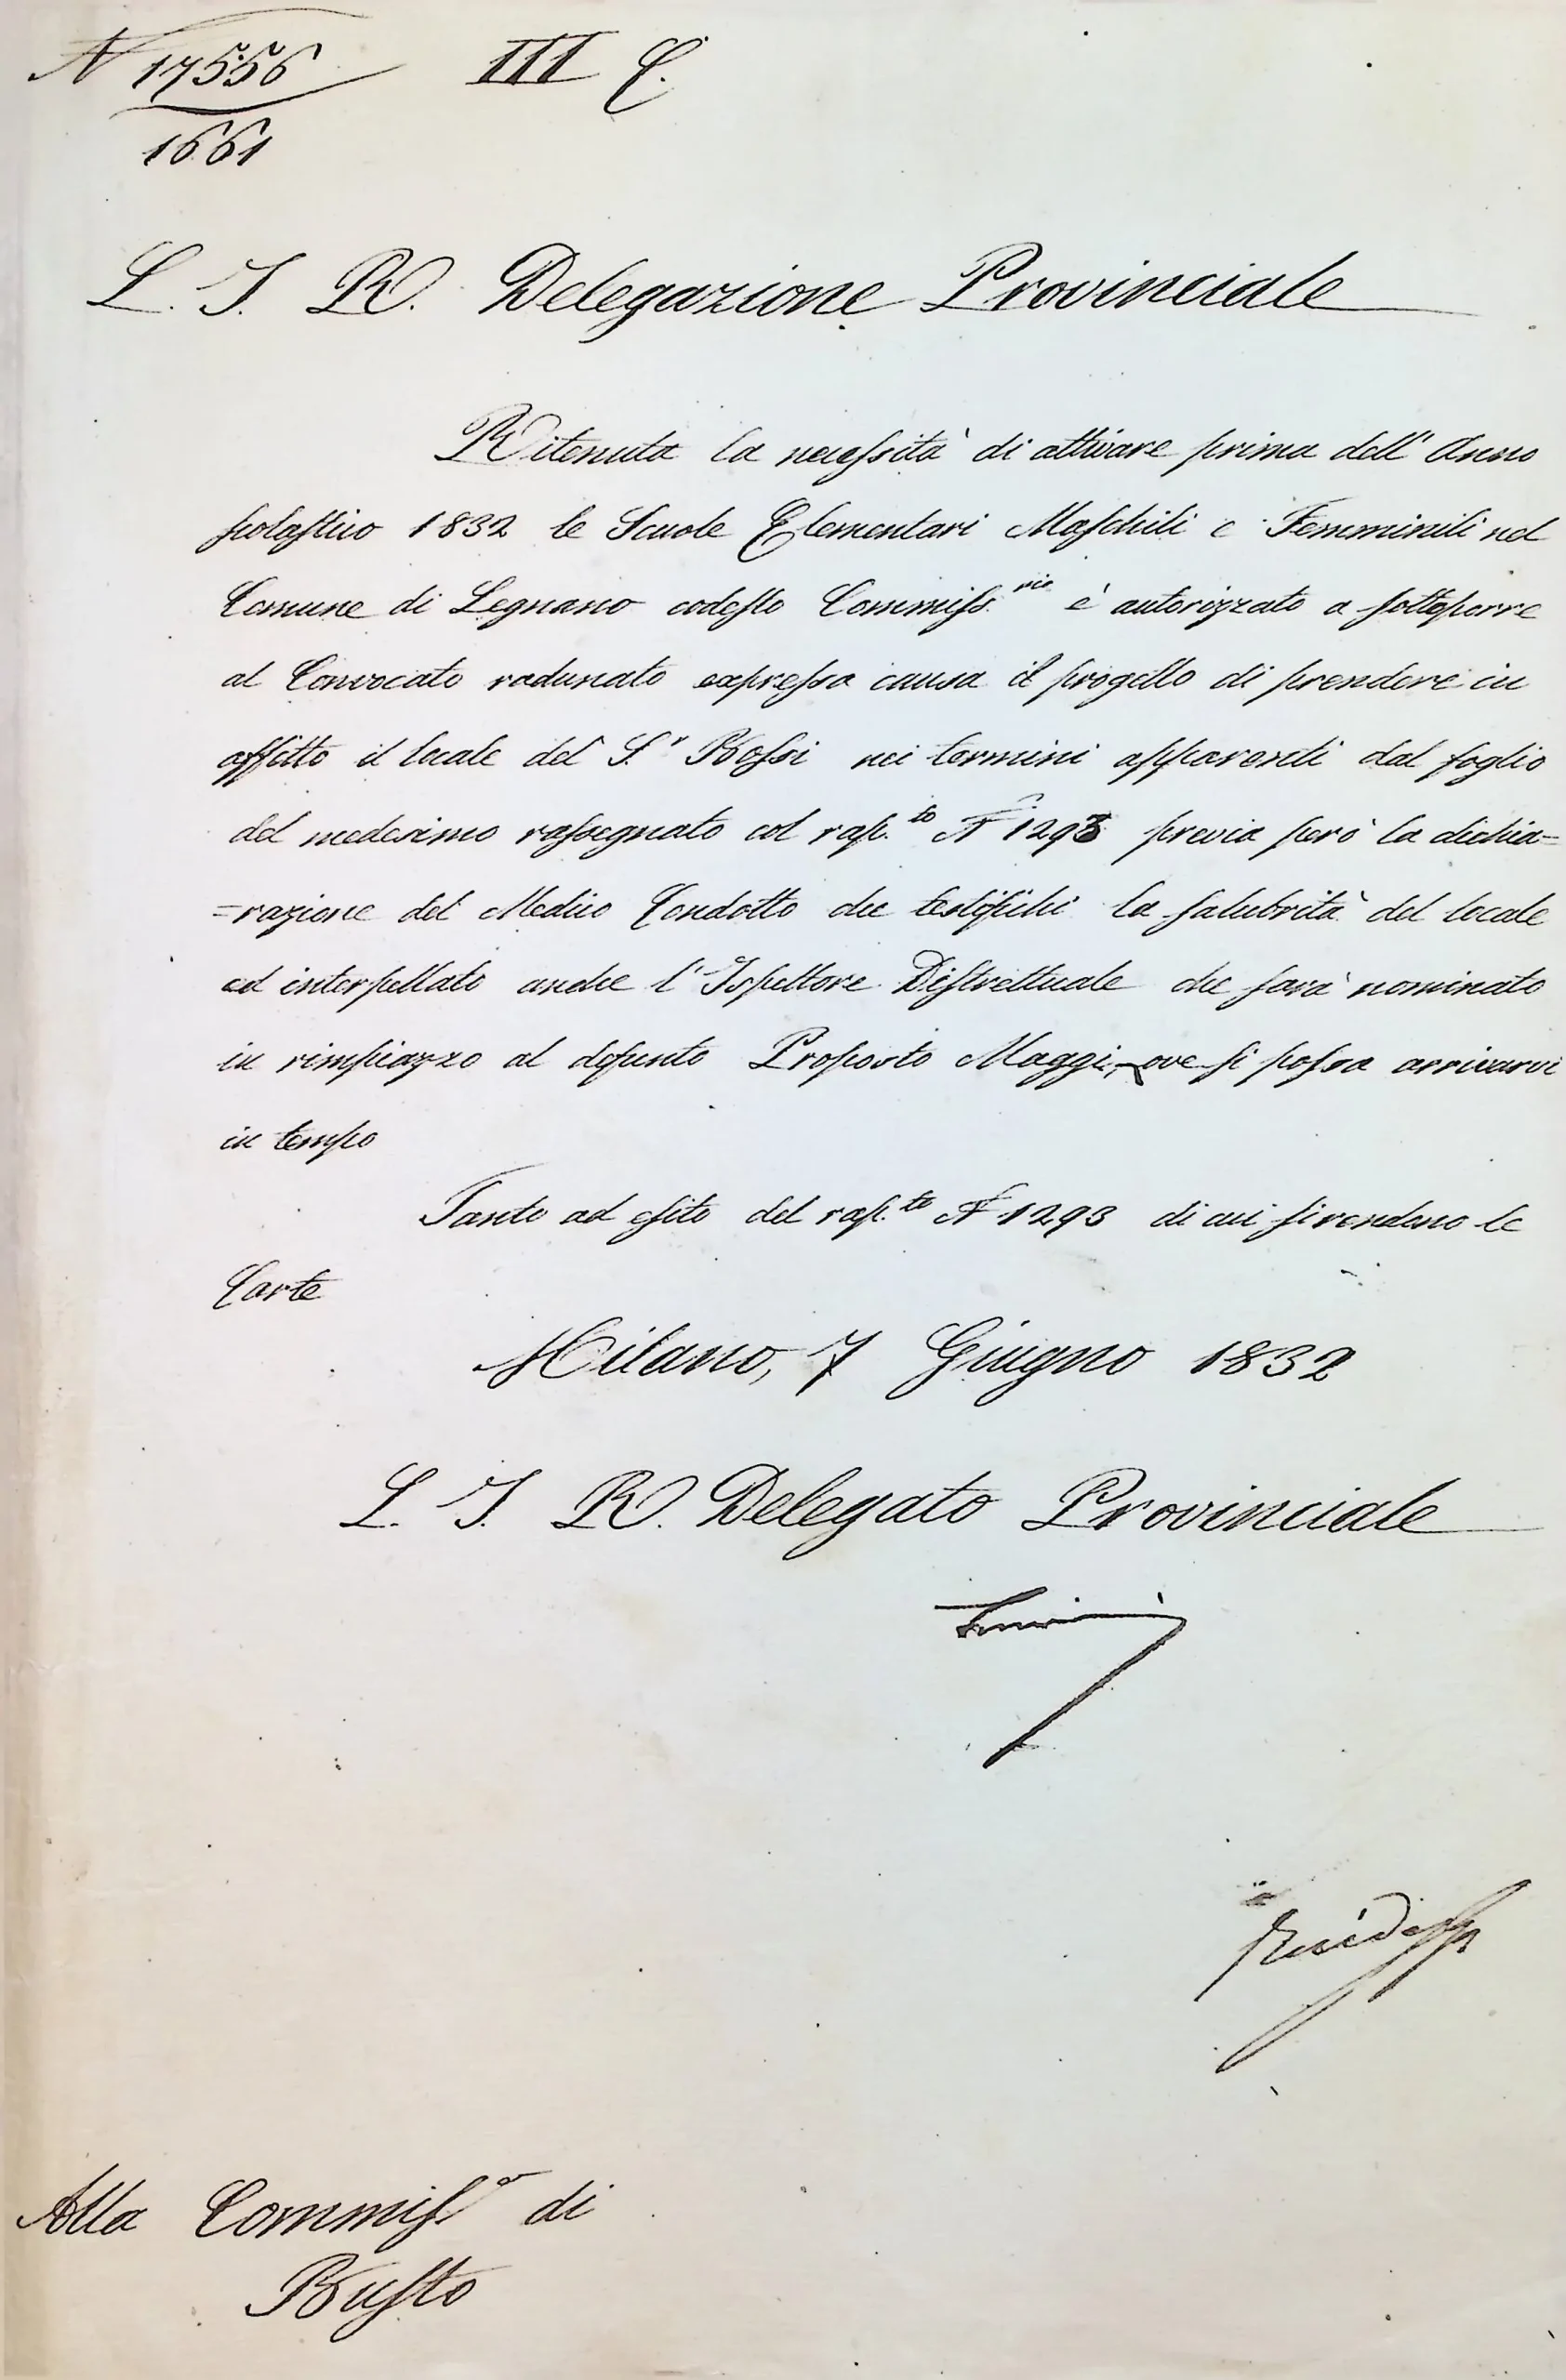 N 17556 III C.
1661
L. I. R. Delegazione Provinciale
Ritenuta la necessità di attivare prima dell' Anno
scolastico 1832 le Scuole Elementari Maschili e Femminili nel
Comune di Legnano codesto Commiss.rio è autorizzato a sottoporre
al Convocato radunato expressa causa il progetto di prendere in
affitto il locale del S.r Rossi nei termini apparenti dal foglio
del medesimo rassegnato col rap.to N 1293 previa però la dichia=
=razione del Medico Condotto che testifichi la salubrità del locale
ed interpellato anche l'Ispettore Distrettuale che sarà nominato
in rimpiazzo al defunto Proposto Maggi, ove si possa arrivarvi
in tempo
Tanto ad esito del rap.to N 1293 di cui si rendono le
Carte
Milano, 7 Giugno 1832
L. I. R. Delegato Provinciale
Alla Commiss.a di
Busto